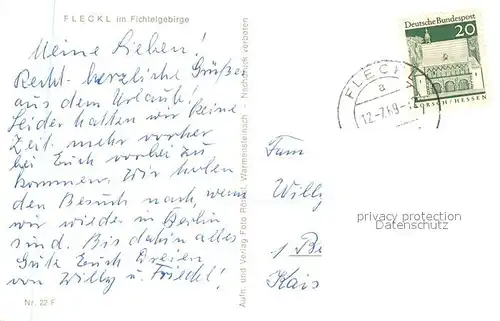 FLECKL im Fichtelgebirge
Meine Lieben!
Recht herzliche Grüße
aus dem Urlaub!
Leider hatten wir keine
Zeit mehr vorher
bei Euch vorbei zu
kommen. Wir holen
den Besuch nach, wenn
wir wieder in Berlin
sind. Bis dahin alles
Gute Euch Dreien
von Willy u. Friedel!
Nr. 22 F
Aufn. und Verlag Foto Warmensteinach - Nachdruck verboten
Deutsche Bundespost
20
LORSCH/HESSEN
FLECKL
a
12.-7.69-12
Fam
Willy
1 Be
Kais
privacy protection
Datenschutz